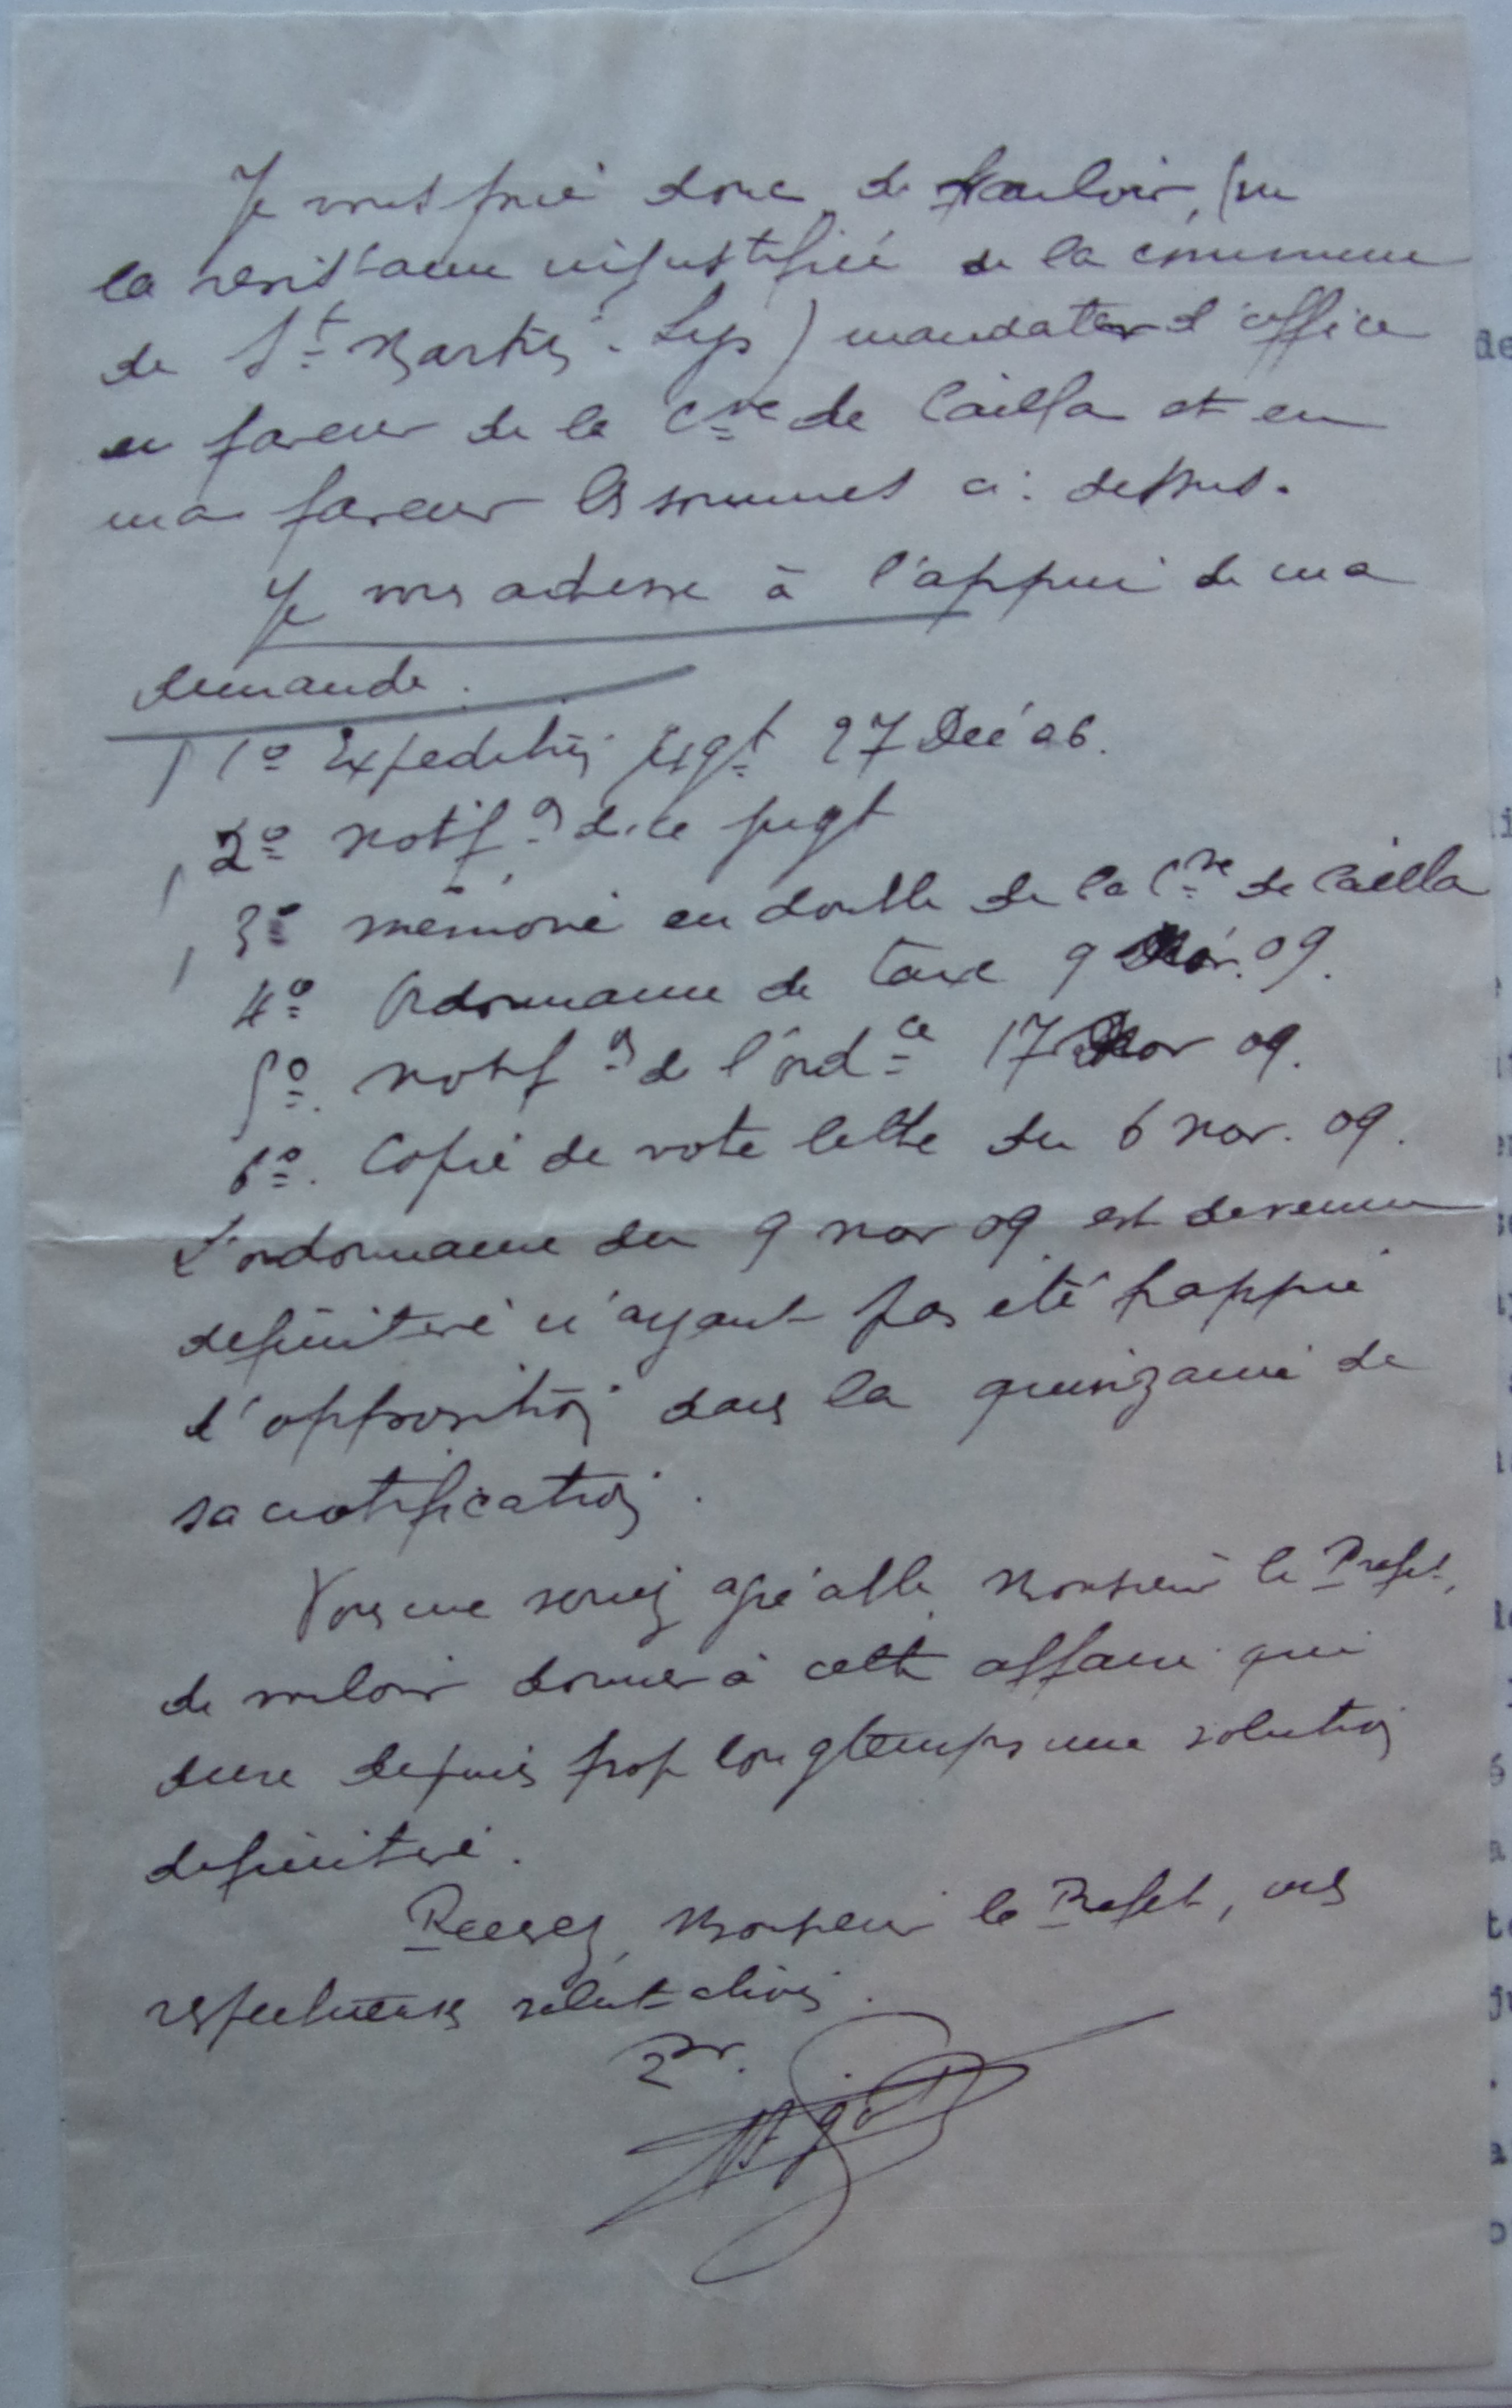 Je vous prie donc de vouloir, (vu
la resistance injustifiée de la commune
de St Martin-Lys) mandater d'office
en faveur de la Cne de Cailla et en
ma faveur les sommes ci-dessus.
Je vous adresse à l'appui de ma
demande.
1o Expedition jugt 27 Dec 06.
2o notifon de ce jugt
3o memoire en double de la Cne de Cailla
4o Ordonnance de taxe 9 Nov. 09.
5o. notifon de l'ordce 17 Nov 09.
6o. Copie de votre lettre du 6 nov. 09.
L'ordonnance du 9 nov 09 est devenue
definitive n'ayant pas été frappée
d'opposition dans la quinzaine de
sa notification.
Vous me seriez agréable, Monsieur le Prefet,
de vouloir donner à cette affaire qui
dure depuis trop longtemps une solution
definitive.
Recevez, Monsieur le Prefet, mes
respectueuses salutations.